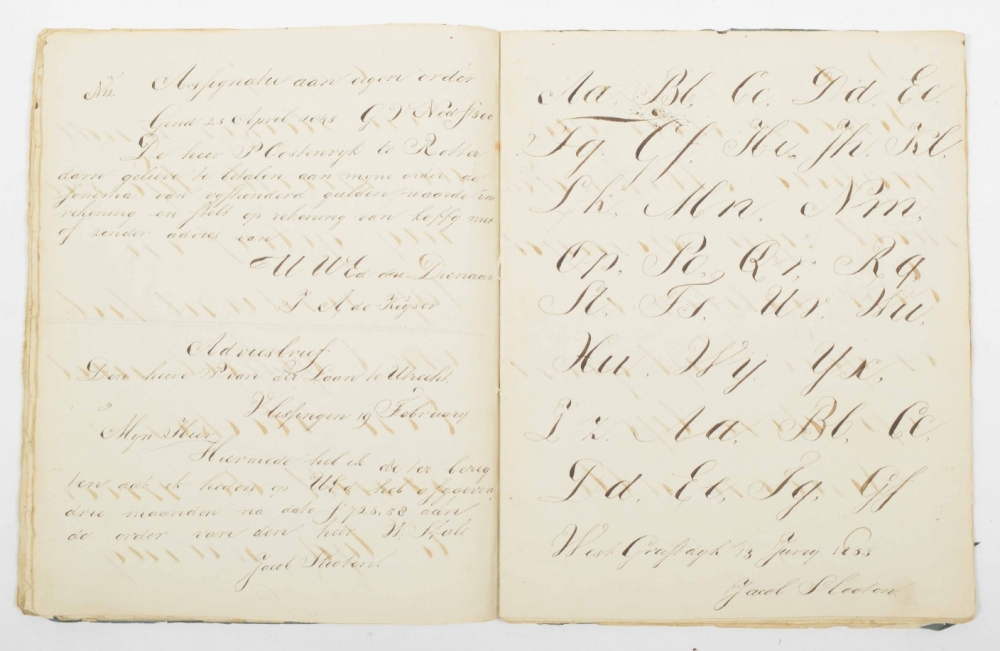 No Assignatie aan eigen order
Gend 25 April 1845 G V Ned f 500
De heer P Oostenryk te Rotter
dam gelieve te betalen aan myne order de
somma van vyfhonderd gulden waarde in
rekening en stelt op rekening van met
of zonder advies van
UWEd dw Dienaar
J A de Kuyser
Adviesbrief
Den heere P van der Laan te Utrecht
Vlessingen 19 February
Myn Heer
Hiermede heb ik de eer berig
ten dat ik heden op UEd heb afgegeven
drie maanden na dato f 723.58 aan
de order van den heer W. Smalt
Jacob Slooten
Aa. Bb. Cc. Dd. Ee.
Fg. Gf. Hi. Jh. Kl.
Lk. Mn. Nm.
Op. Po. Qr. Rq.
St. Ts. Ur. Wu.
Hu. Wy. Yx.
Zz. Aa. Bb. Cc.
Dd. Ee. Fg. Gf
West Graftdyk 13 Juny 1855
Jacob Slooten